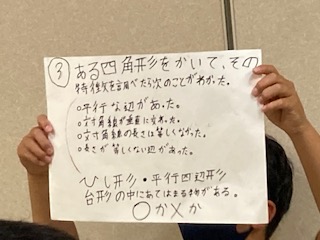 ③ ある四角形をかいて、その
特徴を調べたら次のことがわかった。
○平行な辺があった。
○対角線が垂直に交わった。
○対角線の長さは等しくなかった。
○長さが等しくない辺があった。
ひし形・平行四辺形
台形の中にあてはまる物がある。
○か×か